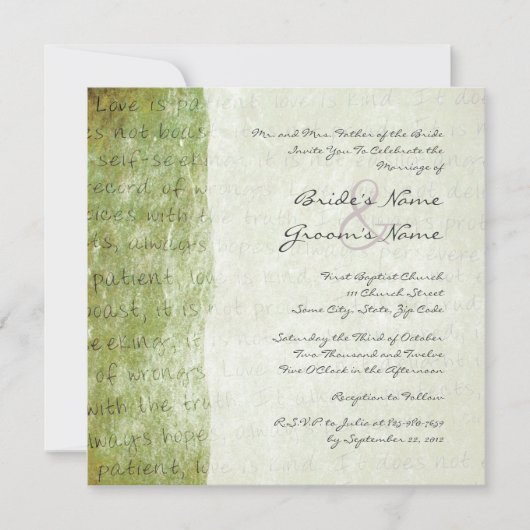 Love is patient, love is kind. It doe
oes not boast, it
self-seeking, it is
record of wrongs. L
oices with the truth. I
ts, always hopes, always per evere
patient, love is kind
boast, it is not pr
seeking, it is
of wrongs. Love
with the truth. It
always hopes, always
patient, love is kind. It does not e
Mr. and Mrs. Father of the Bride
Invite You To Celebrate the
Marriage of
Bride's Name
&
Groom's Name
First Baptist Church
111 Church Street
Some City, State, Zip Code
Saturday the Third of October
Two Thousand and Twelve
Five O'Clock in the Afternoon
Reception to Follow
R.S.V.P to Julia at 825-980-7659
by September 22, 2012